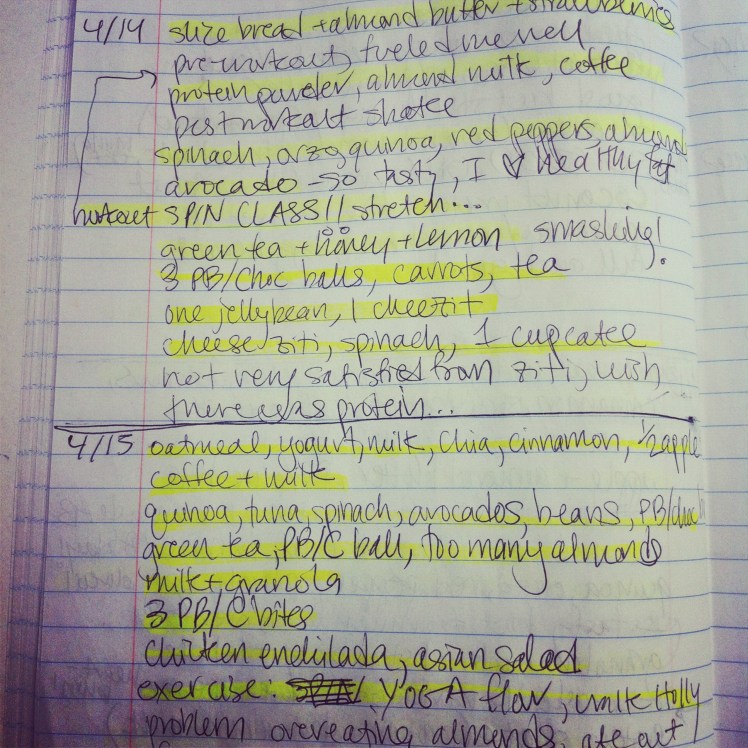 4/14 slice bread + almond butter + strawberries
pre-workout, fueled me well
protein powder, almond milk, coffee
post workout shake
spinach, orzo quinoa, red peppers, almond
avocado - so tasty, I ♡ healthy fat
workout SPIN CLASS!! stretch...
green tea + honey + lemon smashing!
3 PB/choc balls, carrots, tea
one jellybean, 1 cheezit
cheese ziti, spinach, 1 cupcake
not very satisfied from ziti, wish
there was protein...
4/15 oatmeal, yogurt, milk, chia, cinnamon, 1/2 apple
coffee + milk
quinoa, tuna, spinach, avocados, beans, PB/choc
green tea, PB/C ball, too many almonds
milk + granola
3 PB/C bites
chicken enchilada, asian salad
exercise: YOGA flow, walk Holly
problem overeating almonds, ate out